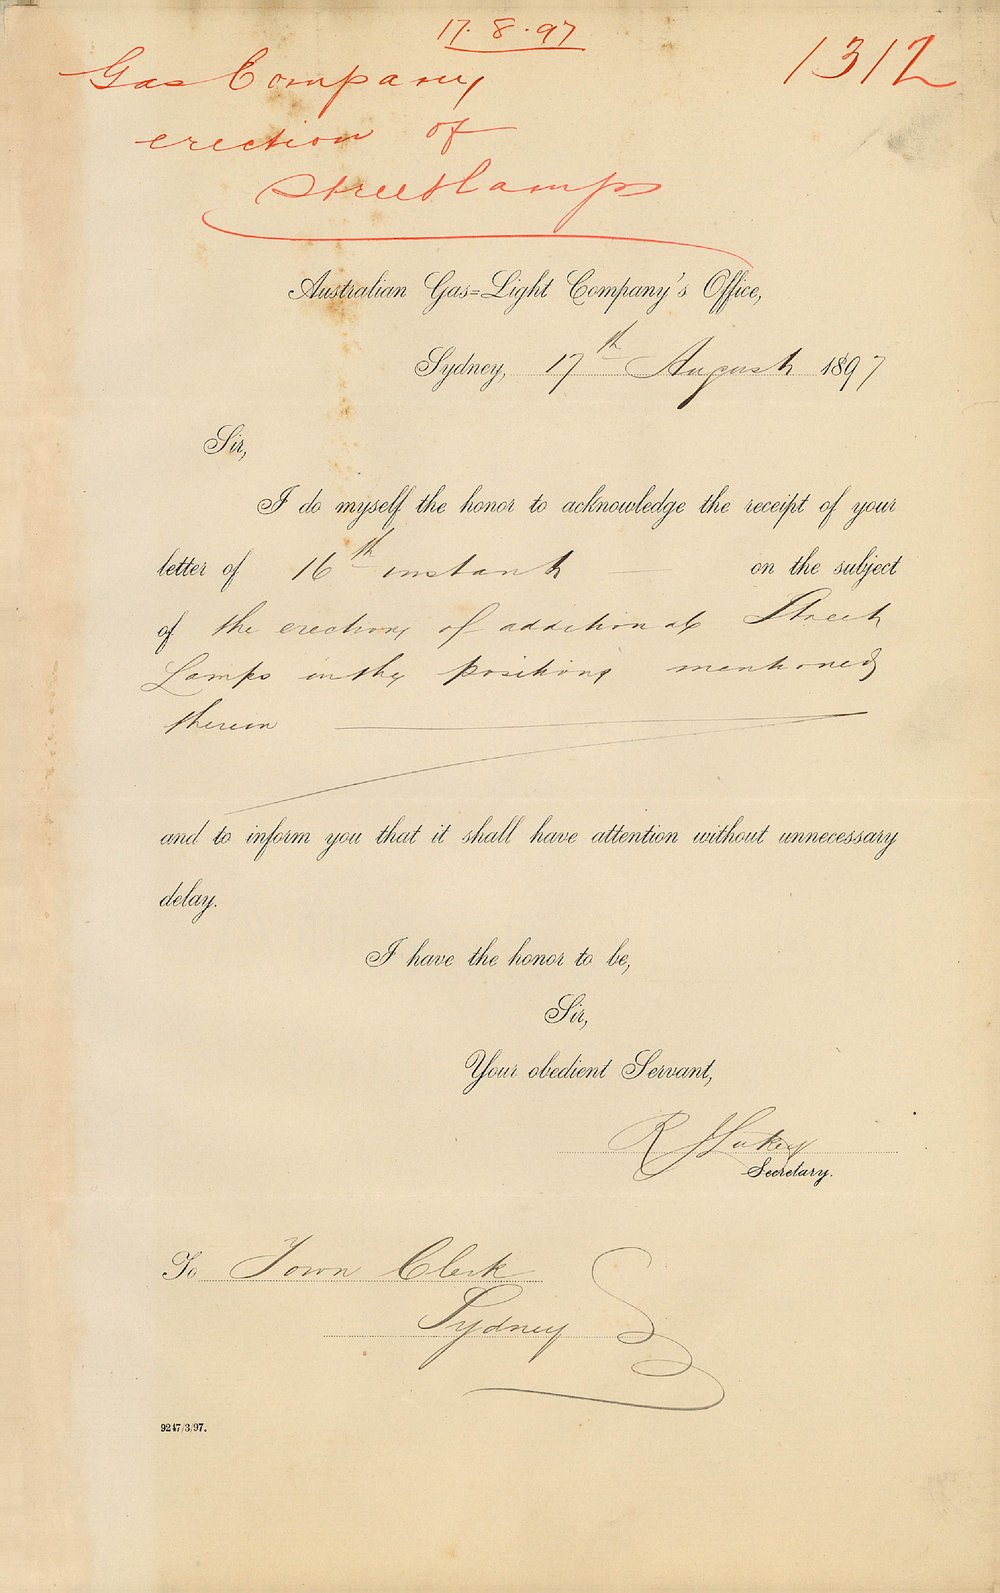 17.8.97
1312
Gas Company
erection of
Street Lamps
Australian Gas=Light Company's Office,
Sydney, 17th August 1897
Sir,
I do myself the honor to acknowledge the receipt of your
letter of 16th instant on the subject
of the erection of additional Street
Lamps in the positions mentioned
therein
and to inform you that it shall have attention without unnecessary
delay.
I have the honor to be,
Sir,
Your obedient Servant,
R J Lukey
Secretary.
To Town Clerk
Sydney
9247/3/97.